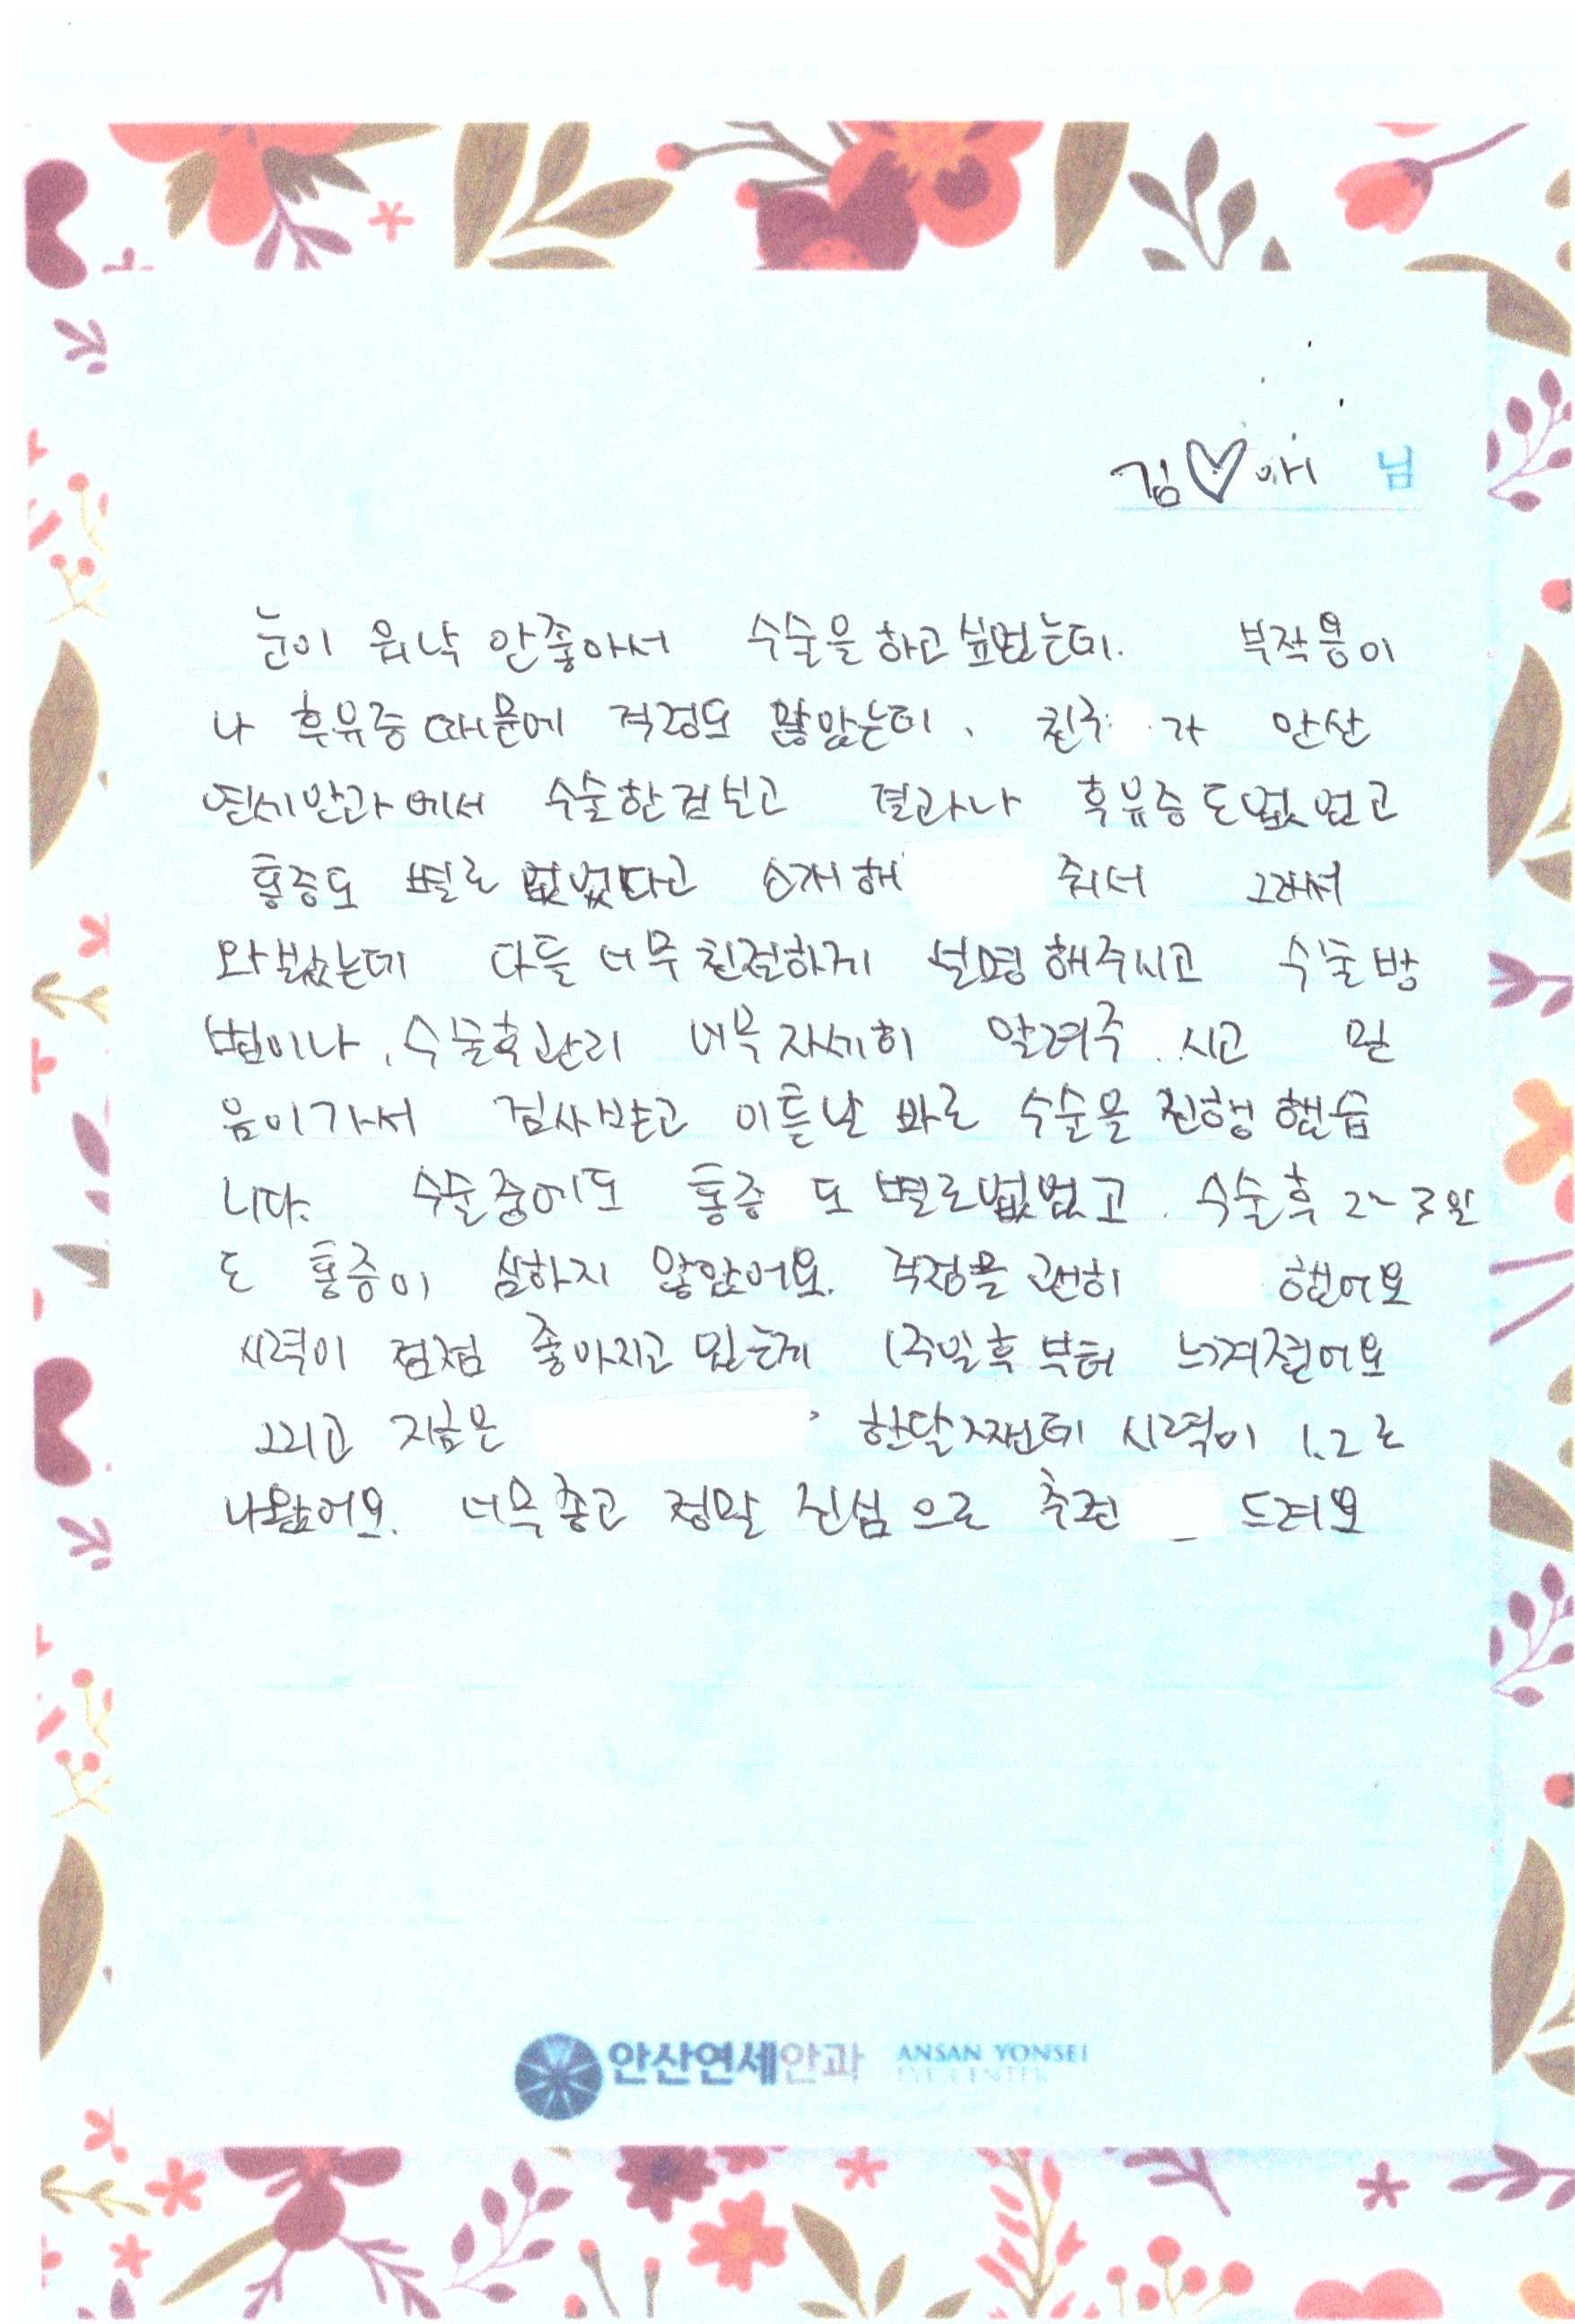 김♡애 님
눈이 워낙 안좋아서 수술을 하고 싶었는데. 부작용이
나 후유증 때문에 걱정도 많았는데, 친구 가 안산
연세안과에서 수술한걸보고 결과나 후유증도없었고
통증도 별로 없었다고 소개해 줘서 그래서
와봤는데 다들 너무 친절하게 설명해주시고 수술방
법이나, 수술후관리 너무 자세히 알려주 시고 믿
음이가서 검사받고 이튿날 바로 수술을 진행 했습
니다. 수술중에도 통증 도 별로없었고. 수술후 2~3일
도 통증이 심하지 않았어요. 걱정을 괜히 했어요
시력이 점점 좋아지고 있는게 1주일후 부터 느껴졌어요
그리고 지금은 한달째인데 시력이 1.2로
나왔어요. 너무 좋고 정말 진심으로 추천 드려요
안산연세안과 ANSAN YONSEI
EYE CENTER